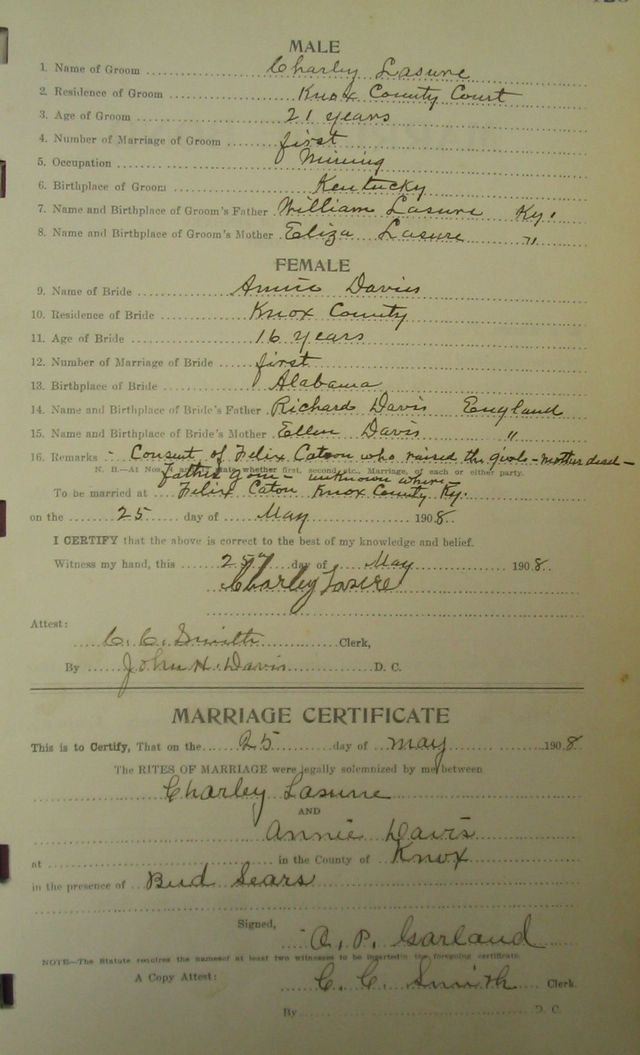 MALE
1. Name of Groom Charley Lasure
2. Residence of Groom Knox County Court
3. Age of Groom 21 years
4. Number of Marriage of Groom first
5. Occupation Mining
6. Birthplace of Groom Kentucky
7. Name and Birthplace of Groom's Father William Lasure Ky.
8. Name and Birthplace of Groom's Mother Eliza Lasure "
FEMALE
9. Name of Bride Annie Davis
10. Residence of Bride Knox County
11. Age of Bride 16 years
12. Number of Marriage of Bride first
13. Birthplace of Bride Alabama
14. Name and Birthplace of Bride's Father Richard Davis England
15. Name and Birthplace of Bride's Mother Ellen Davis "
16. Remarks - Consent of Felix Catson who raised the girl - mother dead -
N. B.—At Nos. state whether first, second, etc., Marriage, of each or either party.
father gon - unknown where -
To be married at Felix Caton Knox County Ky.
on the 25 day of May 1908
I CERTIFY that the above is correct to the best of my knowledge and belief.
Witness my hand, this 25 day of May 1908
Charley Lasure
Attest:
C. C. Smith Clerk,
By John H. Davis D. C.
MARRIAGE CERTIFICATE
This is to Certify, That on the 25 day of May 1908
The RITES OF MARRIAGE were legally solemnized by me between
Charley Lasure
AND
Annie Davis
at in the County of Knox
in the presence of Bud Sears
Signed,
A. P. Garland
NOTE—The Statute requires the names of at least two witnesses to be inserted in the foregoing certificate.
A Copy Attest: C. C. Smith Clerk
By D. C.